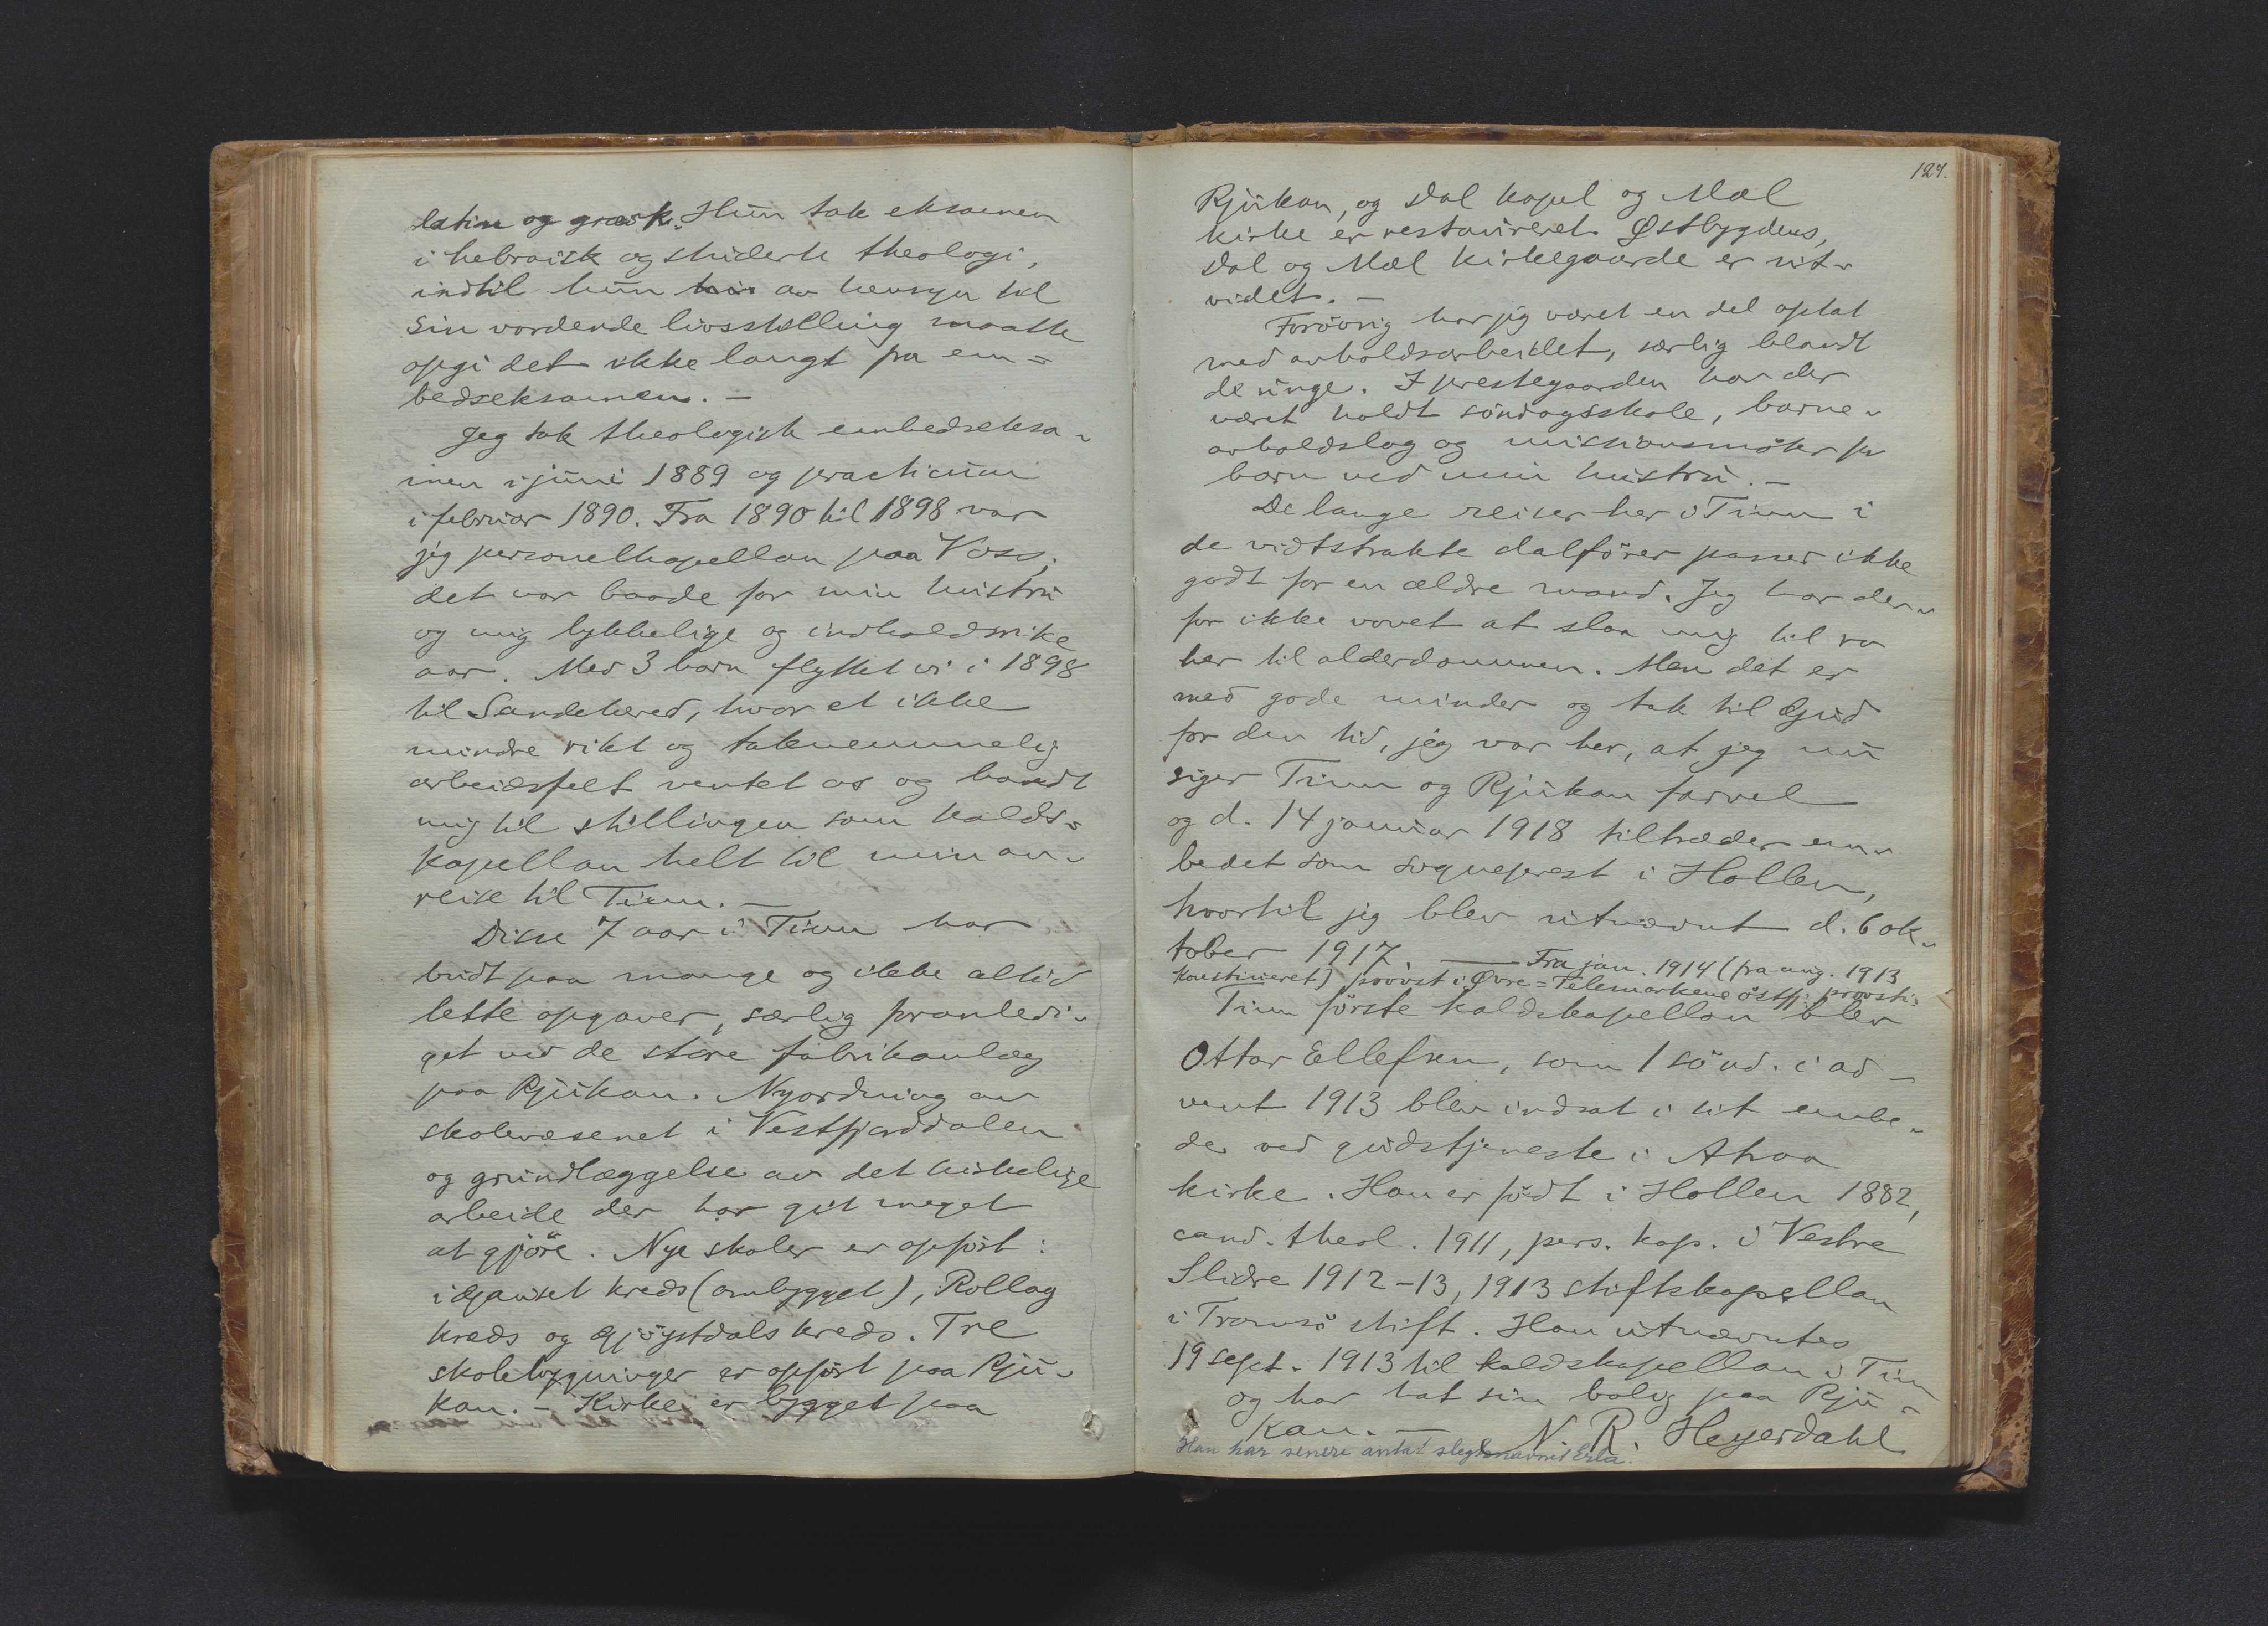 latin og græsk. Hun tok eksamen
i hebraisk og studerte theologi,
indtil hun av hensyn til
sin vordende livsstilling maatte
opgi det ikke langt fra em=
bedseksamen. –
Jeg tok theologisk embedseksa-
men i juni 1889 og practicum
i februar 1890. Fra 1890 til 1898 var
jeg personelkapellan paa Voss;
det var baade for min hustru
og mig lykkelige og indholdsrike
aar. Med 3 barn flyttet vi i 1898
til Sandeherred, hvor et ikke
mindre rikt og taknemmelig
arbeidsfelt ventet os og bandt
mig til stillingen som kalds=
kapellan helt til min an-
reise til Tinn. –
Disse 7 aar i Tinn har
budt paa mange og ikke altid
lette opgaver, særlig foranledi-
get ved de store fabrikanlæg
paa Rjukan. Nyordning av
skolevæsenet i Vestfjorddalen
og grundlæggelse av det kirkelige
arbeide der har git meget
at gjöre. Nye skoler er opfört:
i Gauset kreds (ombygget), Rollag
kreds og Gjöystdals kreds. Tre
skolebygninger er opfört paa Rju-
kan. – Kirke er bygget paa
127.
Rjukan, og Dal kapel og Mæl
kirke er restaureret. Østbygdens,
Dal og Mæl kirkegaarde er ut-
videt. –
Forövrig har jeg været en del optat
med avholdsarbeidet, særlig blandt
de unge. I prestegaarden har der
været holdt söndagsskole, barne-
avholdslag og missionsmöter for
barn ved min hustru. –
De lange reiser her i Tinn i
de vidtstrakte dalförer passer ikke
godt for en ældre mand. Jeg har der-
for ikke vovet at slaa mig til ro
her til alderdommen. Men det er
med gode minder og tak til Gud
for den tid, jeg var her, at jeg nu
siger Tinn og Rjukan farvel
og d. 14 januar 1918 tiltræder em-
bedet som sogneprest i Hollen,
hvortil jeg blev utnævnt d. 6 ok-
tober 1917. — Fra jan. 1914 (fra aug. 1913
konstitueret) provst i Øvre=Telemarkens östfj. provsti.
Tinn förste kaldskapellan blev
Ottar Ellefsen, som 1 sönd. i ad-
vent 1913 blev indsat i sit embe-
de ved gudstjeneste i Atraa
kirke. Han er födt i Hollen 1882,
cand. theol. 1911, pers. kap. i Vestre
Slidre 1912-13, 1913 stiftskapellan
i Tromsö stift. Han utnævntes
19 sept. 1913 til kaldskapellan i Tinn
og har hat sin bolig paa Rju-
kan. – N. R. Heyerdahl
Han har senere antat slegtsnavnet